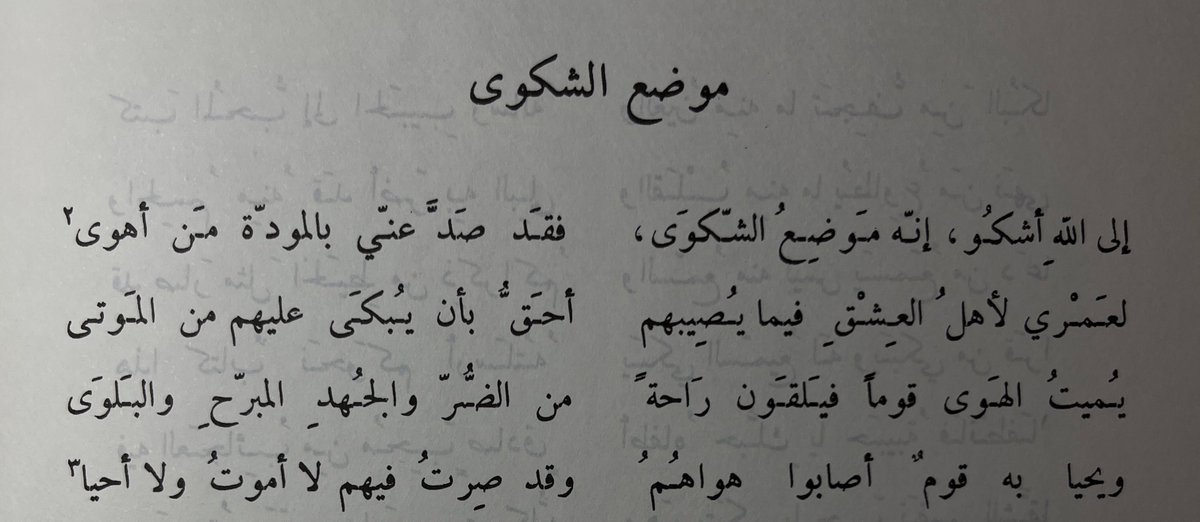 موضع الشكوى
إلى اللهِ أشكُو، إنّه مَوضِعُ الشّكوَى، فقَد صَدَّ عنّي بالمودّة مَن أهوى٢
لعَمْري لأهلُ العِشْقِ فيما يُصِيبهم أحَقُّ بأن يُبكَى عليهم من المَوتى
يُميتُ الهَوى قوماً فيَلقَون رَاحةً من الضُّرّ والجُهدِ المبرّحِ والبَلوَى
ويحيا به قومٌ أصابوا هواهُمُ وقد صِرتُ فيهم لا أموتُ ولا أحيا٣